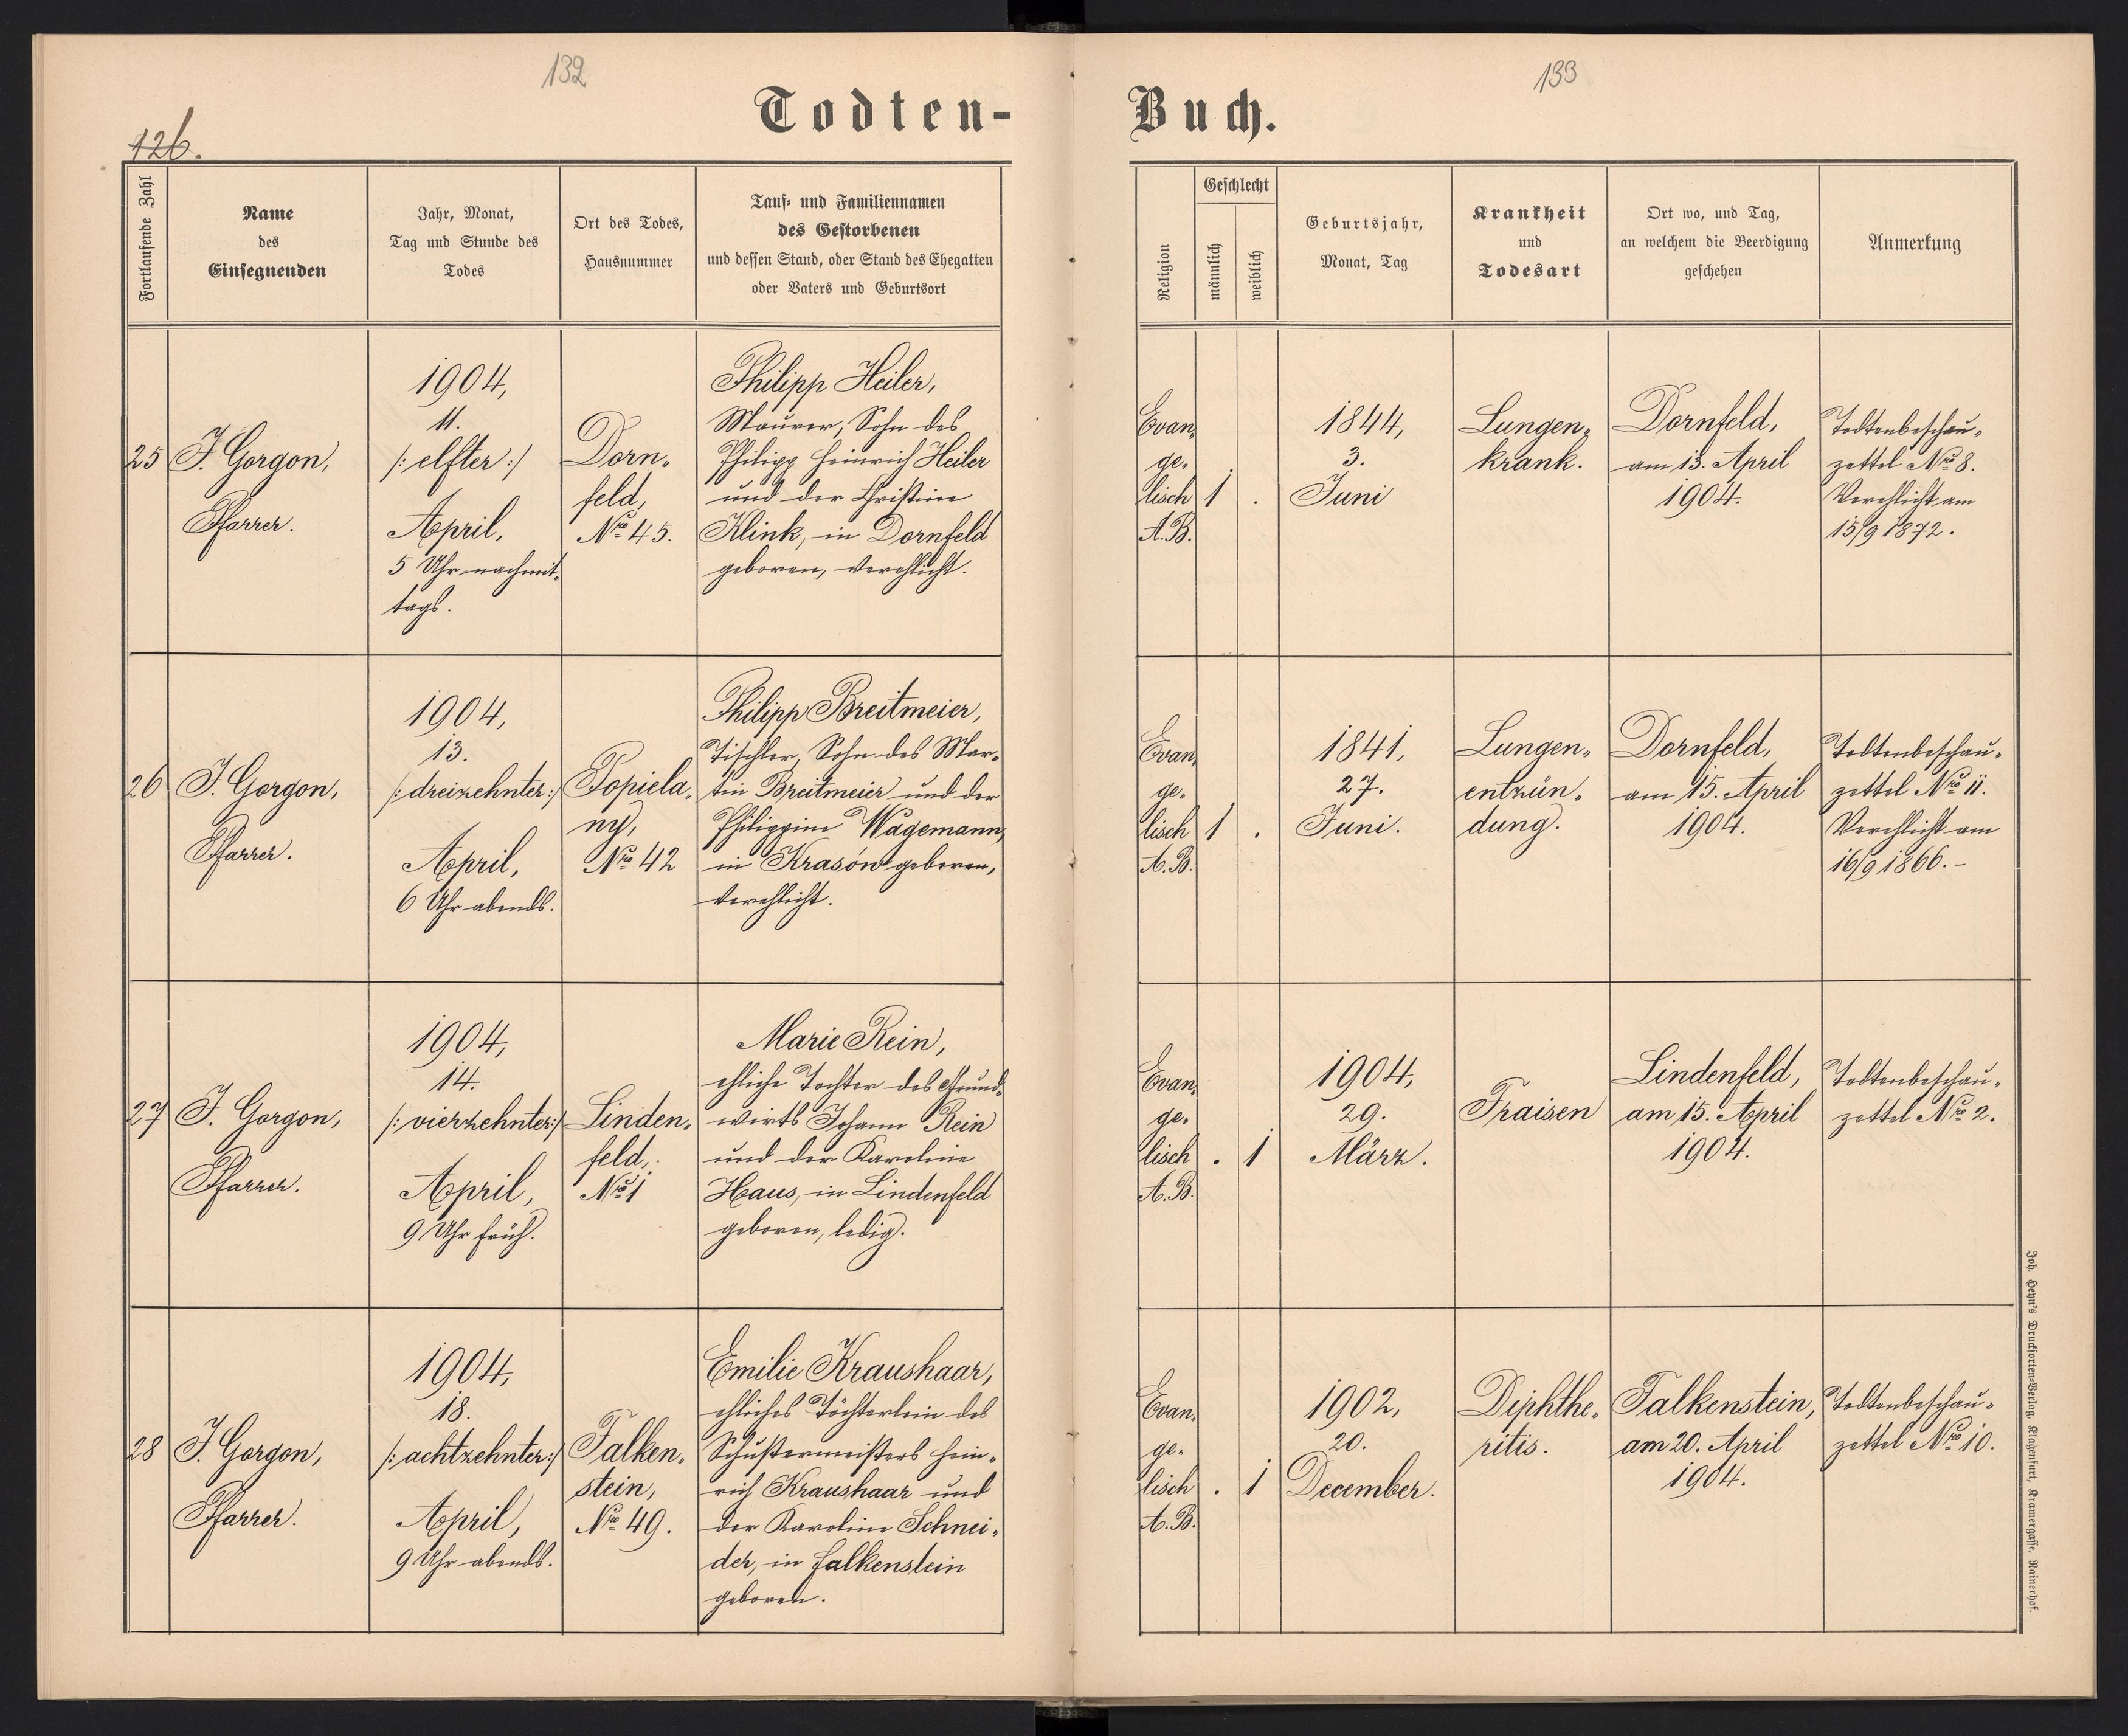 132
133
Todten-
Buch.
126.
Fortlaufende Zahl
Name
des
Einsegnenden
Jahr, Monat,
Tag und Stunde des
Todes
Ort des Todes,
Hausnummer
Tauf- und Familiennamen
des Gestorbenen
und dessen Stand, oder Stand des Ehegatten
oder Vaters und Geburtsort
Religion
Geschlecht
männlich
weiblich
Geburtsjahr,
Monat, Tag
Krankheit
und
Todesart
Ort wo, und Tag,
an welchem die Beerdigung
geschehen
Anmerkung
25
J. Gorgon,
Pfarrer.
1904,
11.
/: elfter :/
April,
5 Uhr nachmit-
tags.
Dorn-
feld,
Nro 45.
Philipp Heiler,
Maurer, Sohn des
Philipp Heinrich Heiler
und der Christine
Klink, in Dornfeld
geboren, verehlicht.
Evan-
ge-
lisch
A.B.
1
.
1844,
3.
Juni
Lungen-
krank.
Dornfeld,
am 13. April
1904.
Todtenbeschau-
zettel Nro 8.
Verehlicht am
15/9 1872.
26
J. Gorgon,
Pfarrer.
1904,
13.
/: dreizehnter :/
April,
6 Uhr abends.
Popiela-
ny,
Nro 42
Philipp Breitmeier,
Tischler, Sohn des Mar-
tin Breitmeier und der
Philippine Wagemann,
in Krasów geboren,
verehlicht.
Evan-
ge-
lisch
A.B.
1
.
1841,
27.
Juni.
Lungen-
entzün-
dung.
Dornfeld,
am 15. April
1904.
Todtenbeschau-
zettel Nro 11.
Verehlicht am
16/9 1866.-
27
J. Gorgon,
Pfarrer.
1904,
14.
/: vierzehnter :/
April,
9 Uhr früh.
Linden-
feld,
Nro 1
Marie Rein,
ehliche Tochter des Grund-
wirts Johann Rein
und der Karoline
Haus, in Lindenfeld
geboren, ledig.
Evan-
ge-
lisch
A.B.
.
1
1904,
29.
März.
Fraisen
Lindenfeld,
am 15. April
1904.
Todtenbeschau-
zettel Nro 2.
28
J. Gorgon,
Pfarrer.
1904,
18.
/: achtzehnter :/
April,
9 Uhr abends.
Falken-
stein,
Nro 49.
Emilie Kraushaar,
ehliches Töchterlein des
Schustermeisters Hein-
rich Kraushaar und
der Karoline Schnei-
der, in Falkenstein
geboren.
Evan-
ge-
lisch
A.B.
.
1
1902,
20.
December.
Diphthe-
ritis.
Falkenstein,
am 20. April
1904.
Todtenbeschau-
zettel Nro 10.
Joh. Heyn's Drucksorten-Verlag, Klagenfurt, Kramergasse, Rainerhof.